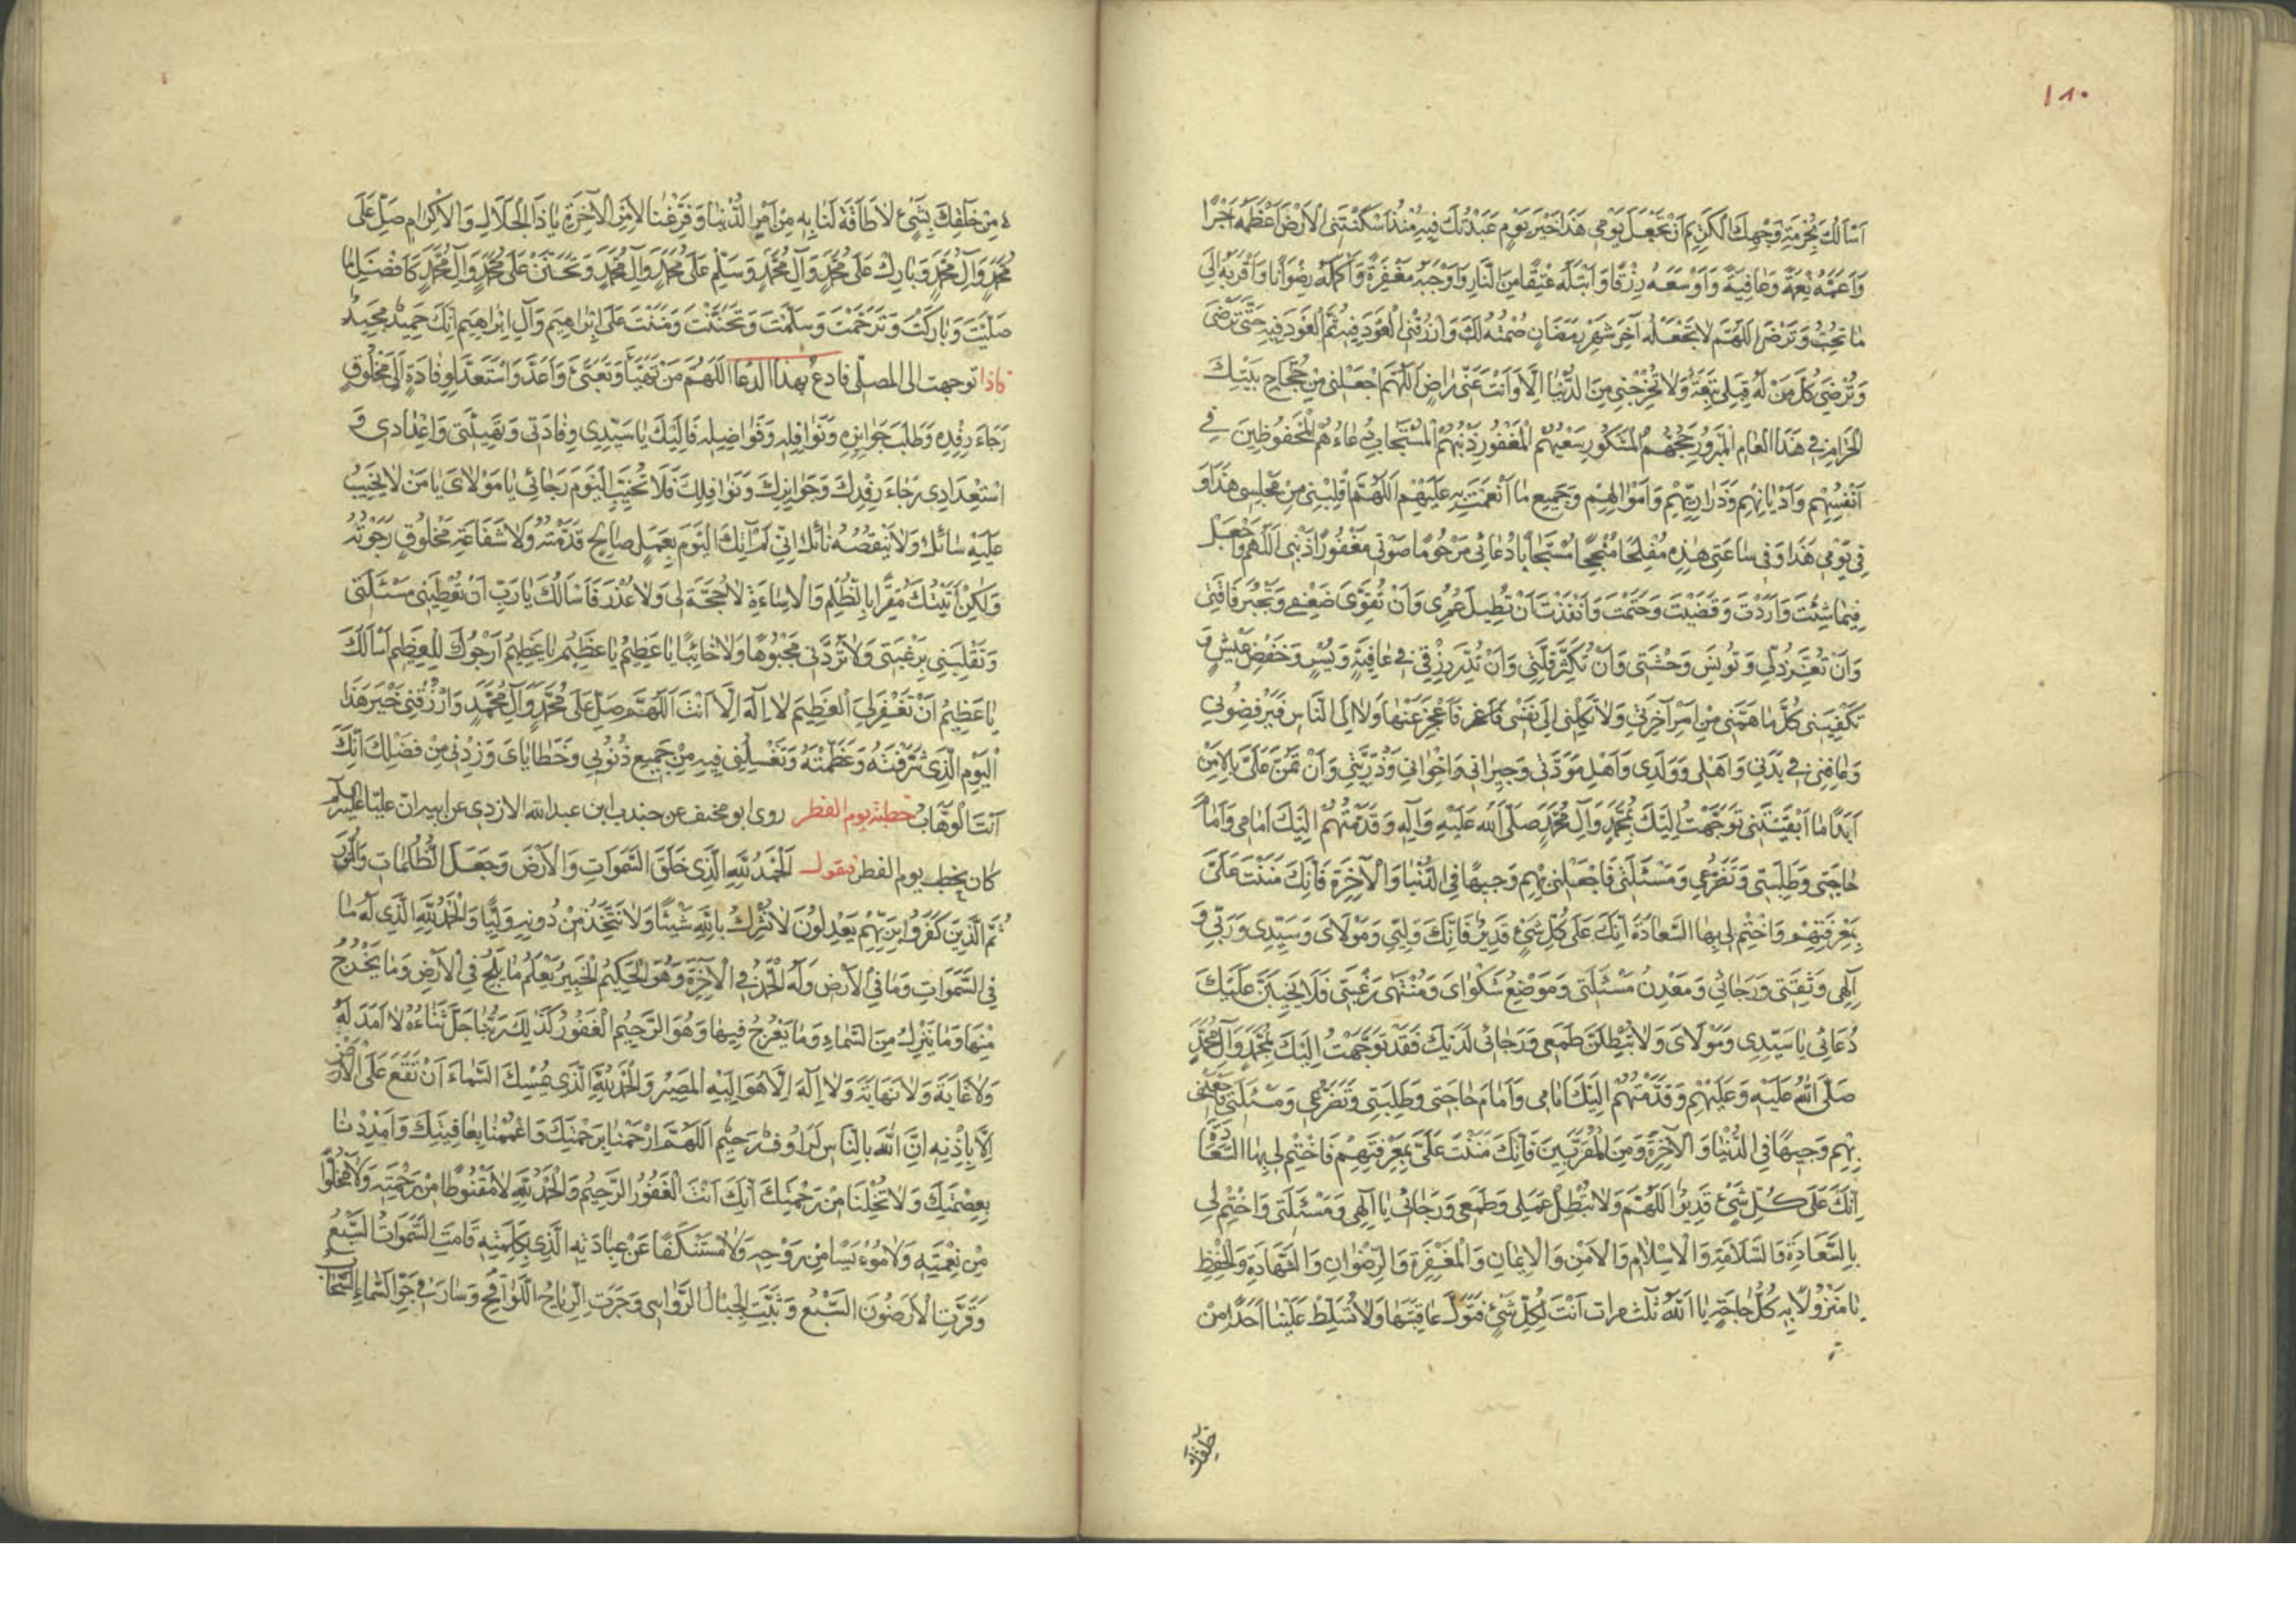 ١٨٠
اَسْاَلُكَ بِحُرْمَةِ وَجْهِكَ الْكَرِيمِ اَنْ تَجْعَلَ يَوْمِي هَذَا خَيْرَ يَوْمٍ عَبَدْتُكَ فِيهِ مُنْذُ اَسْكَنْتَنِي الْاَرْضَ اَعْظَمَهُ اَجْرًا
وَاَعَمَّهُ نِعْمَةً وَعَافِيَةً وَاَوْسَعَهُ رِزْقًا وَاَبْتَلَهُ عِتْقًا مِنَ النَّارِ وَاَوْجَبَهُ مَغْفِرَةً وَاَكْمَلَهُ رِضْوَانًا وَاَقْرَبَهُ اِلَى
مَا تُحِبُّ وَتَرْضَى اَللّهُمَّ لَا تَجْعَلْهُ آخِرَ شَهْرِ رَمَضَانٍ صُمْتُهُ لَكَ وَارْزُقْنِي الْعَوْدَ فِيهِ ثُمَّ الْعَوْدَ فِيهِ حَتَّى تَرْضَى
وَتُرْضِيَ كُلَّ مَنْ لَهُ قِبَلِي تَبِعَةٌ وَلَا تُخْرِجْنِي مِنَ الدُّنْيَا اِلَّا وَاَنْتَ عَنِّي رَاضٍ اَللّهُمَّ اجْعَلْنِي مِنْ حُجَّاجِ بَيْتِكَ
الْحَرَامِ فِي هَذَا الْعَامِ الْمَبْرُورِ حَجُّهُمُ الْمَشْكُورِ سَعْيُهُمُ الْمَغْفُورِ ذَنْبُهُمُ الْمُسْتَجَابِ دُعَاءُهُمُ الْمَحْفُوظِينَ فِي
اَنْفُسِهِمْ وَاَدْيَانِهِمْ وَذَرَارِيِّهِمْ وَاَمْوَالِهِمْ وَجَمِيعِ مَا اَنْعَمْتَ بِهِ عَلَيْهِمْ اَللّهُمَّ اقْلِبْنِي مِنْ مَجْلِسِي هَذَا وَ
فِي يَوْمِي هَذَا وَفِي سَاعَتِي هذِهِ مُفْلِحًا مُنْجِحًا مُسْتَجَابًا دُعَائِي مَرْحُومًا صَوْتِي مَغْفُورًا ذَنْبِي اَللّهُمَّ وَاجْعَلْ
فِيمَا شِئْتَ وَاَرَدْتَ وَقَضَيْتَ وَحَتَمْتَ وَاَنْفَذْتَ اَنْ تُطِيلَ عُمُرِي وَاَنْ تُقَوِّيَ ضَعْفِي وَتَجْبُرَ فَاقَتِي
وَاَنْ تُعِزَّ ذُلِّي وَتُونِسَ وَحْشَتِي وَاَنْ تُكَثِّرَ قِلَّتِي وَاَنْ تُدِرَّ رِزْقِي فِي عَافِيَةٍ وَيُسْرٍ وَخَفْضِ عَيْشٍ وَ
تَكْفِيَنِي كُلَّ مَا هَمَّنِي مِنْ اَمْرِ آخِرَتِي وَلَا تَكِلْنِي اِلَى نَفْسِي فَاَعْجِزَ عَنْهَا وَلَا اِلَى النَّاسِ فَيَرْفِضُونِي
وَعَافِنِي فِي بَدَنِي وَاَهْلِي وَوَلَدِي وَاَهْلِ مَوَدَّتِي وَجِيرَانِي وَاِخْوَانِي وَذُرِّيَّتِي وَاَنْ تَمُنَّ عَلَيَّ بِالْاَمْنِ
اَبَدًا مَا اَبْقَيْتَنِي تَوَجَّهْتُ اِلَيْكَ بِمُحَمَّدٍ وَآلِ مُحَمَّدٍ صَلَّى اللّهُ عَلَيْهِ وَآلِهِ وَقَدَّمْتُهُمْ اِلَيْكَ اَمَامِي وَاَمَامَ
حَاجَتِي وَطَلِبَتِي وَتَضَرُّعِي وَمَسْئَلَتِي فَاجْعَلْنِي بِهِمْ وَجِيهًا فِي الدُّنْيَا وَالْآخِرَةِ فَاِنَّكَ مَنَنْتَ عَلَيَّ
بِمَعْرِفَتِهِمْ وَاخْتِمْ لِي بِهَا السَّعَادَةَ اِنَّكَ عَلَى كُلِّ شَيْءٍ قَدِيرٌ فَاِنَّكَ وَلِيِّي وَمَوْلَايَ وَسَيِّدِي وَرَبِّي وَ
اِلهِي وَثِقَتِي وَرَجَائِي وَمَعْدِنُ مَسْئَلَتِي وَمَوْضِعُ شَكْوَايَ وَمُنْتَهَى رَغْبَتِي فَلَا يَخِيبَنَّ عَلَيْكَ
دُعَائِي يَا سَيِّدِي وَمَوْلَايَ وَلَا تُبْطِلَنَّ طَمَعِي وَرَجَائِي لَدَيْكَ فَقَدْ تَوَجَّهْتُ اِلَيْكَ بِمُحَمَّدٍ وَآلِ مُحَمَّدٍ
صَلَّى اللّهُ عَلَيْهِ وَعَلَيْهِمْ وَقَدَّمْتُهُمْ اِلَيْكَ اَمَامِي وَاَمَامَ حَاجَتِي وَطَلِبَتِي وَتَضَرُّعِي وَمَسْئَلَتِي فَاجْعَلْنِي
بِهِمْ وَجِيهًا فِي الدُّنْيَا وَالْآخِرَةِ وَمِنَ الْمُقَرَّبِينَ فَاِنَّكَ مَنَنْتَ عَلَيَّ بِمَعْرِفَتِهِمْ فَاخْتِمْ لِي بِهَا السَّعَادَةَ
اِنَّكَ عَلَى كُلِّ شَيْءٍ قَدِيرٌ اَللّهُمَّ وَلَا تُبْطِلْ عَمَلِي وَطَمَعِي وَرَجَائِي يَا اِلهِي وَمَسْئَلَتِي وَاخْتِمْ لِي
بِالسَّعَادَةِ وَالسَّلَامَةِ وَالْاِسْلَامِ وَالْاَمْنِ وَالْاِيمَانِ وَالْمَغْفِرَةِ وَالرِّضْوَانِ وَالشَّهَادَةِ وَالْحِفْظِ
يَا مَنْزُولًا بِهِ كُلُّ حَاجَةٍ يَا اَللّهُ ثلث مرات اَنْتَ لِكُلِّ شَيْءٍ فَتَوَلَّ عَاقِبَتَهَا وَلَا تُسَلِّطْ عَلَيْنَا اَحَدًا مِنْ
خلقك
مِنْ خَلْقِكَ بِشَيْءٍ لَا طَاقَةَ لَنَا بِهِ مِنْ اَمْرِ الدُّنْيَا وَفَرِّغْنَا لِاَمْرِ الْآخِرَةِ يَا ذَا الْجَلَالِ وَالْاِكْرَامِ صَلِّ عَلَى
مُحَمَّدٍ وَآلِ مُحَمَّدٍ وَبَارِكْ عَلَى مُحَمَّدٍ وَآلِ مُحَمَّدٍ وَسَلِّمْ عَلَى مُحَمَّدٍ وَآلِ مُحَمَّدٍ وَتَحَنَّنْ عَلَى مُحَمَّدٍ وَآلِ مُحَمَّدٍ كَاَفْضَلِ مَا
صَلَّيْتَ وَبَارَكْتَ وَتَرَحَّمْتَ وَسَلَّمْتَ وَتَحَنَّنْتَ وَمَنَنْتَ عَلَى اِبْرَاهِيمَ وَآلِ اِبْرَاهِيمَ اِنَّكَ حَمِيدٌ مَجِيدٌ
فاذا توجهت الى المصلى فادع بهذا الدعا اَللّهُمَّ مَنْ تَهَيَّأَ وَتَعَبَّى وَاَعَدَّ وَاسْتَعَدَّ لِوِفَادَةٍ اِلَى مَخْلُوقٍ
رَجَاءَ رِفْدِهِ وَطَلَبَ جَوَائِزِهِ وَنَوَافِلِهِ وَفَوَاضِيلِهِ فَاِلَيْكَ يَا سَيِّدِي وِفَادَتِي وَتَهْيِئَتِي وَاِعْدَادِي وَ
اسْتِعْدَادِي رَجَاءَ رِفْدِكَ وَجَوَايِزِكَ وَنَوَافِلِكَ فَلَا تُخَيِّبِ الْيَوْمَ رَجَائِي يَا مَوْلَايَ يَا مَنْ لَا يَخِيبُ
عَلَيْهِ سَائِلٌ وَلَا يَنْقُصُهُ نَائِلٌ اِنِّي لَمْ آتِكَ الْيَوْمَ بِعَمَلٍ صَالِحٍ قَدَّمْتُهُ وَلَا شَفَاعَةِ مَخْلُوقٍ رَجَوْتُهُ
وَلكِنْ اَتَيْتُكَ مُقِرًّا بِالظُّلْمِ وَالْاِسَاءَةِ لَا حُجَّةَ لِي وَلَا عُذْرَ فَاَسْاَلُكَ يَا رَبِّ اَنْ تُعْطِيَنِي مَسْئَلَتِي
وَتَقْلِبَنِي بِرَغْبَتِي وَلَا تَرُدَّنِي مَجْبُوهًا وَلَا خَائِبًا يَا عَظِيمُ يَا عَظِيمُ يَا عَظِيمُ اَرْجُوكَ لِلْعَظِيمِ اَسْاَلُكَ
يَا عَظِيمُ اَنْ تَغْفِرَ لِيَ الْعَظِيمَ لَا اِلهَ اِلَّا اَنْتَ اَللّهُمَّ صَلِّ عَلَى مُحَمَّدٍ وَآلِ مُحَمَّدٍ وَارْزُقْنِي خَيْرَ هَذَا
الْيَوْمِ الَّذِي شَرَّفْتَهُ وَعَظَّمْتَهُ وَتَغْسِلُنِي فِيهِ مِنْ جَمِيعِ ذُنُوبِي وَخَطَايَايَ وَزِدْنِي مِنْ فَضْلِكَ اِنَّكَ
اَنْتَ الْوَهَّابُ خطبة يوم الفطر روى ابو مخنف عن جندب ابن عبد الله الازدي عن ابيه ان عليا عليه السلم
كان يخطب يوم الفطر فيقول اَلْحَمْدُ لِلّهِ الَّذِي خَلَقَ السَّمَوَاتِ وَالْاَرْضَ وَجَعَلَ الظُّلُمَاتِ وَالنُّورَ
ثُمَّ الَّذِينَ كَفَرُوا بِرَبِّهِمْ يَعْدِلُونَ لَا نُشْرِكُ بِاللّهِ شَيْئًا وَلَا نَتَّخِذُ مِنْ دُونِهِ وَلِيًّا وَالْحَمْدُ لِلّهِ الَّذِي لَهُ مَا
فِي السَّمَوَاتِ وَمَا فِي الْاَرْضِ وَلَهُ الْحَمْدُ فِي الْآخِرَةِ وَهُوَ الْحَكِيمُ الْخَبِيرُ يَعْلَمُ مَا يَلِجُ فِي الْاَرْضِ وَمَا يَخْرُجُ
مِنْهَا وَمَا يَنْزِلُ مِنَ السَّمَاءِ وَمَا يَعْرُجُ فِيهَا وَهُوَ الرَّحِيمُ الْغَفُورُ كَذلِكَ رَبُّنَا جَلَّ ثَنَاءُهُ لَا اَمَدَ لَهُ
وَلَا غَايَةَ وَلَا نَهَايَةَ وَلَا اِلهَ اِلَّا هُوَ اِلَيْهِ الْمَصِيرُ وَالْحَمْدُ لِلّهِ الَّذِي يُمْسِكُ السَّمَاءَ اَنْ تَقَعَ عَلَى الْاَرْضِ
اِلَّا بِاِذْنِهِ اِنَّ اللّهَ بِالنَّاسِ لَرَاُوفٌ رَحِيمٌ اَللّهُمَّ ارْحَمْنَا بِرَحْمَتِكَ وَاعْمُمْنَا بِعَافِيَتِكَ وَاَمْدِدْنَا
بِعِصْمَتِكَ وَلَا تُخْلِنَا مِنْ رَحْمَتِكَ اِنَّكَ اَنْتَ الْغَفُورُ الرَّحِيمُ وَالْحَمْدُ لِلّهِ لَا مَقْنُوطًا مِنْ رَحْمَتِهِ وَلَا مَخْلُوًّا
مِنْ نِعْمَتِهِ وَلَا مُؤْيَسًا مِنْ رَوْحِهِ وَلَا مُسْتَنْكَفًا عَنْ عِبَادَتِهِ الَّذِي بِكَلِمَتِهِ قَامَتِ السَّمَوَاتُ السَّبْعُ
وَقَرَّتِ الْاَرَضُونَ السَّبْعُ وَثَبَتَتِ الْجِبَالُ الرَّوَاسِي وَجَرَتِ الرِّيَاحُ اللَّوَاقِحُ وَسَارَتْ فِي جَوِّ السَّمَاءِ السَّحَابُ